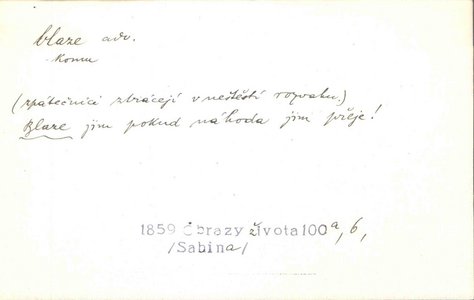 blaze adv.
komu
(zpátečníci ztrácejí v neštěstí rozvahu.)
Blaze jim pokud náhoda jim přeje!
1859 Obrazy života 100 a, 6,
/Sabina/